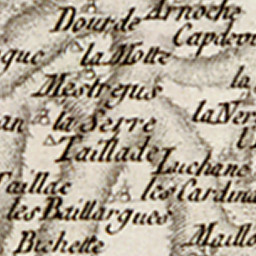 Dourde Arnoche
Capdev
que la Motte
Mestregus
la
an la Serre la Ver
Taillade
Luchane
Taillac les Cardina
les Baillargues
Bichette Maillo